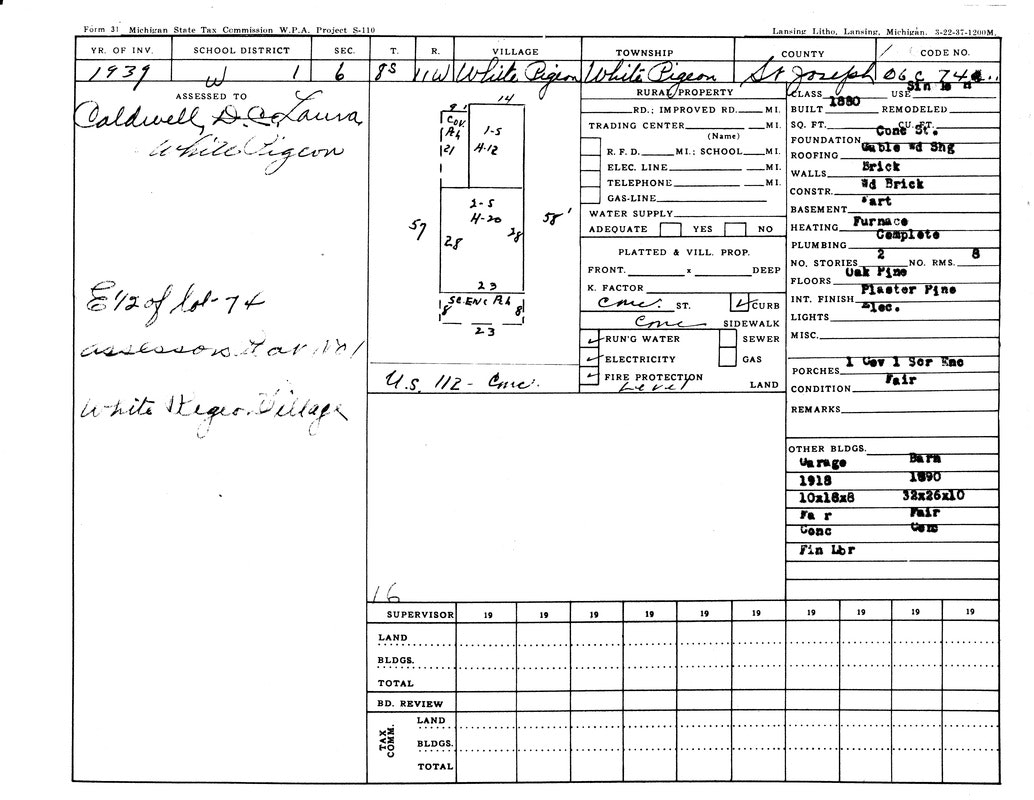 Form 31 Michigan State Tax Commission W.P.A. Project S-110
Lansing Litho, Lansing, Michigan. 3-22-37-1200M.
YR. OF INV. SCHOOL DISTRICT SEC. T. R. VILLAGE TOWNSHIP COUNTY CODE NO.
1939 W 1 6 8S 11W White Pigeon White Pigeon St Joseph 06 C 74
ASSESSED TO
Caldwell, D. C. Laura,
White Pigeon
E 1/2 of lot-74
assessors
White Pigeon Village
14
9'
Cov.
Ph
21
1-5
H-12
2-5
H-20
57
58'
28
28
23
Sc. Enc Ph
8
8
23
U.S. 112 - Conc.
RURAL PROPERTY
RD.; IMPROVED RD. MI.
TRADING CENTER MI.
(Name)
R. F. D. MI.; SCHOOL MI.
ELEC. LINE MI.
TELEPHONE MI.
GAS-LINE
WATER SUPPLY
ADEQUATE YES NO
PLATTED & VILL. PROP.
FRONT. x DEEP
K. FACTOR
Conc. ST. ✓ CURB
Conc SIDEWALK
✓ RUN'G WATER SEWER
✓ ELECTRICITY GAS
✓ FIRE PROTECTION
Level LAND
CLASS USE
BUILT 1880 REMODELED
SQ. FT. CU. FT.
FOUNDATION Conc St.
ROOFING Gable Wd Shg
WALLS Brick
CONSTR. Wd Brick
BASEMENT Part
HEATING Furnace
PLUMBING Complete
NO. STORIES 2 NO. RMS. 8
FLOORS Oak Pine
INT. FINISH Plaster Pine
LIGHTS Elec.
MISC.
PORCHES 1 Cov 1 Scr Enc
CONDITION Fair
REMARKS
OTHER BLDGS.
Garage Barn
1918 1890
10x18x8 32x26x10
Fa r Fair
Conc Com
Fin Lbr
16
SUPERVISOR 19 19 19 19 19 19 19 19 19
LAND
BLDGS.
TOTAL
BD. REVIEW
TAX COMM.
LAND
BLDGS.
TOTAL